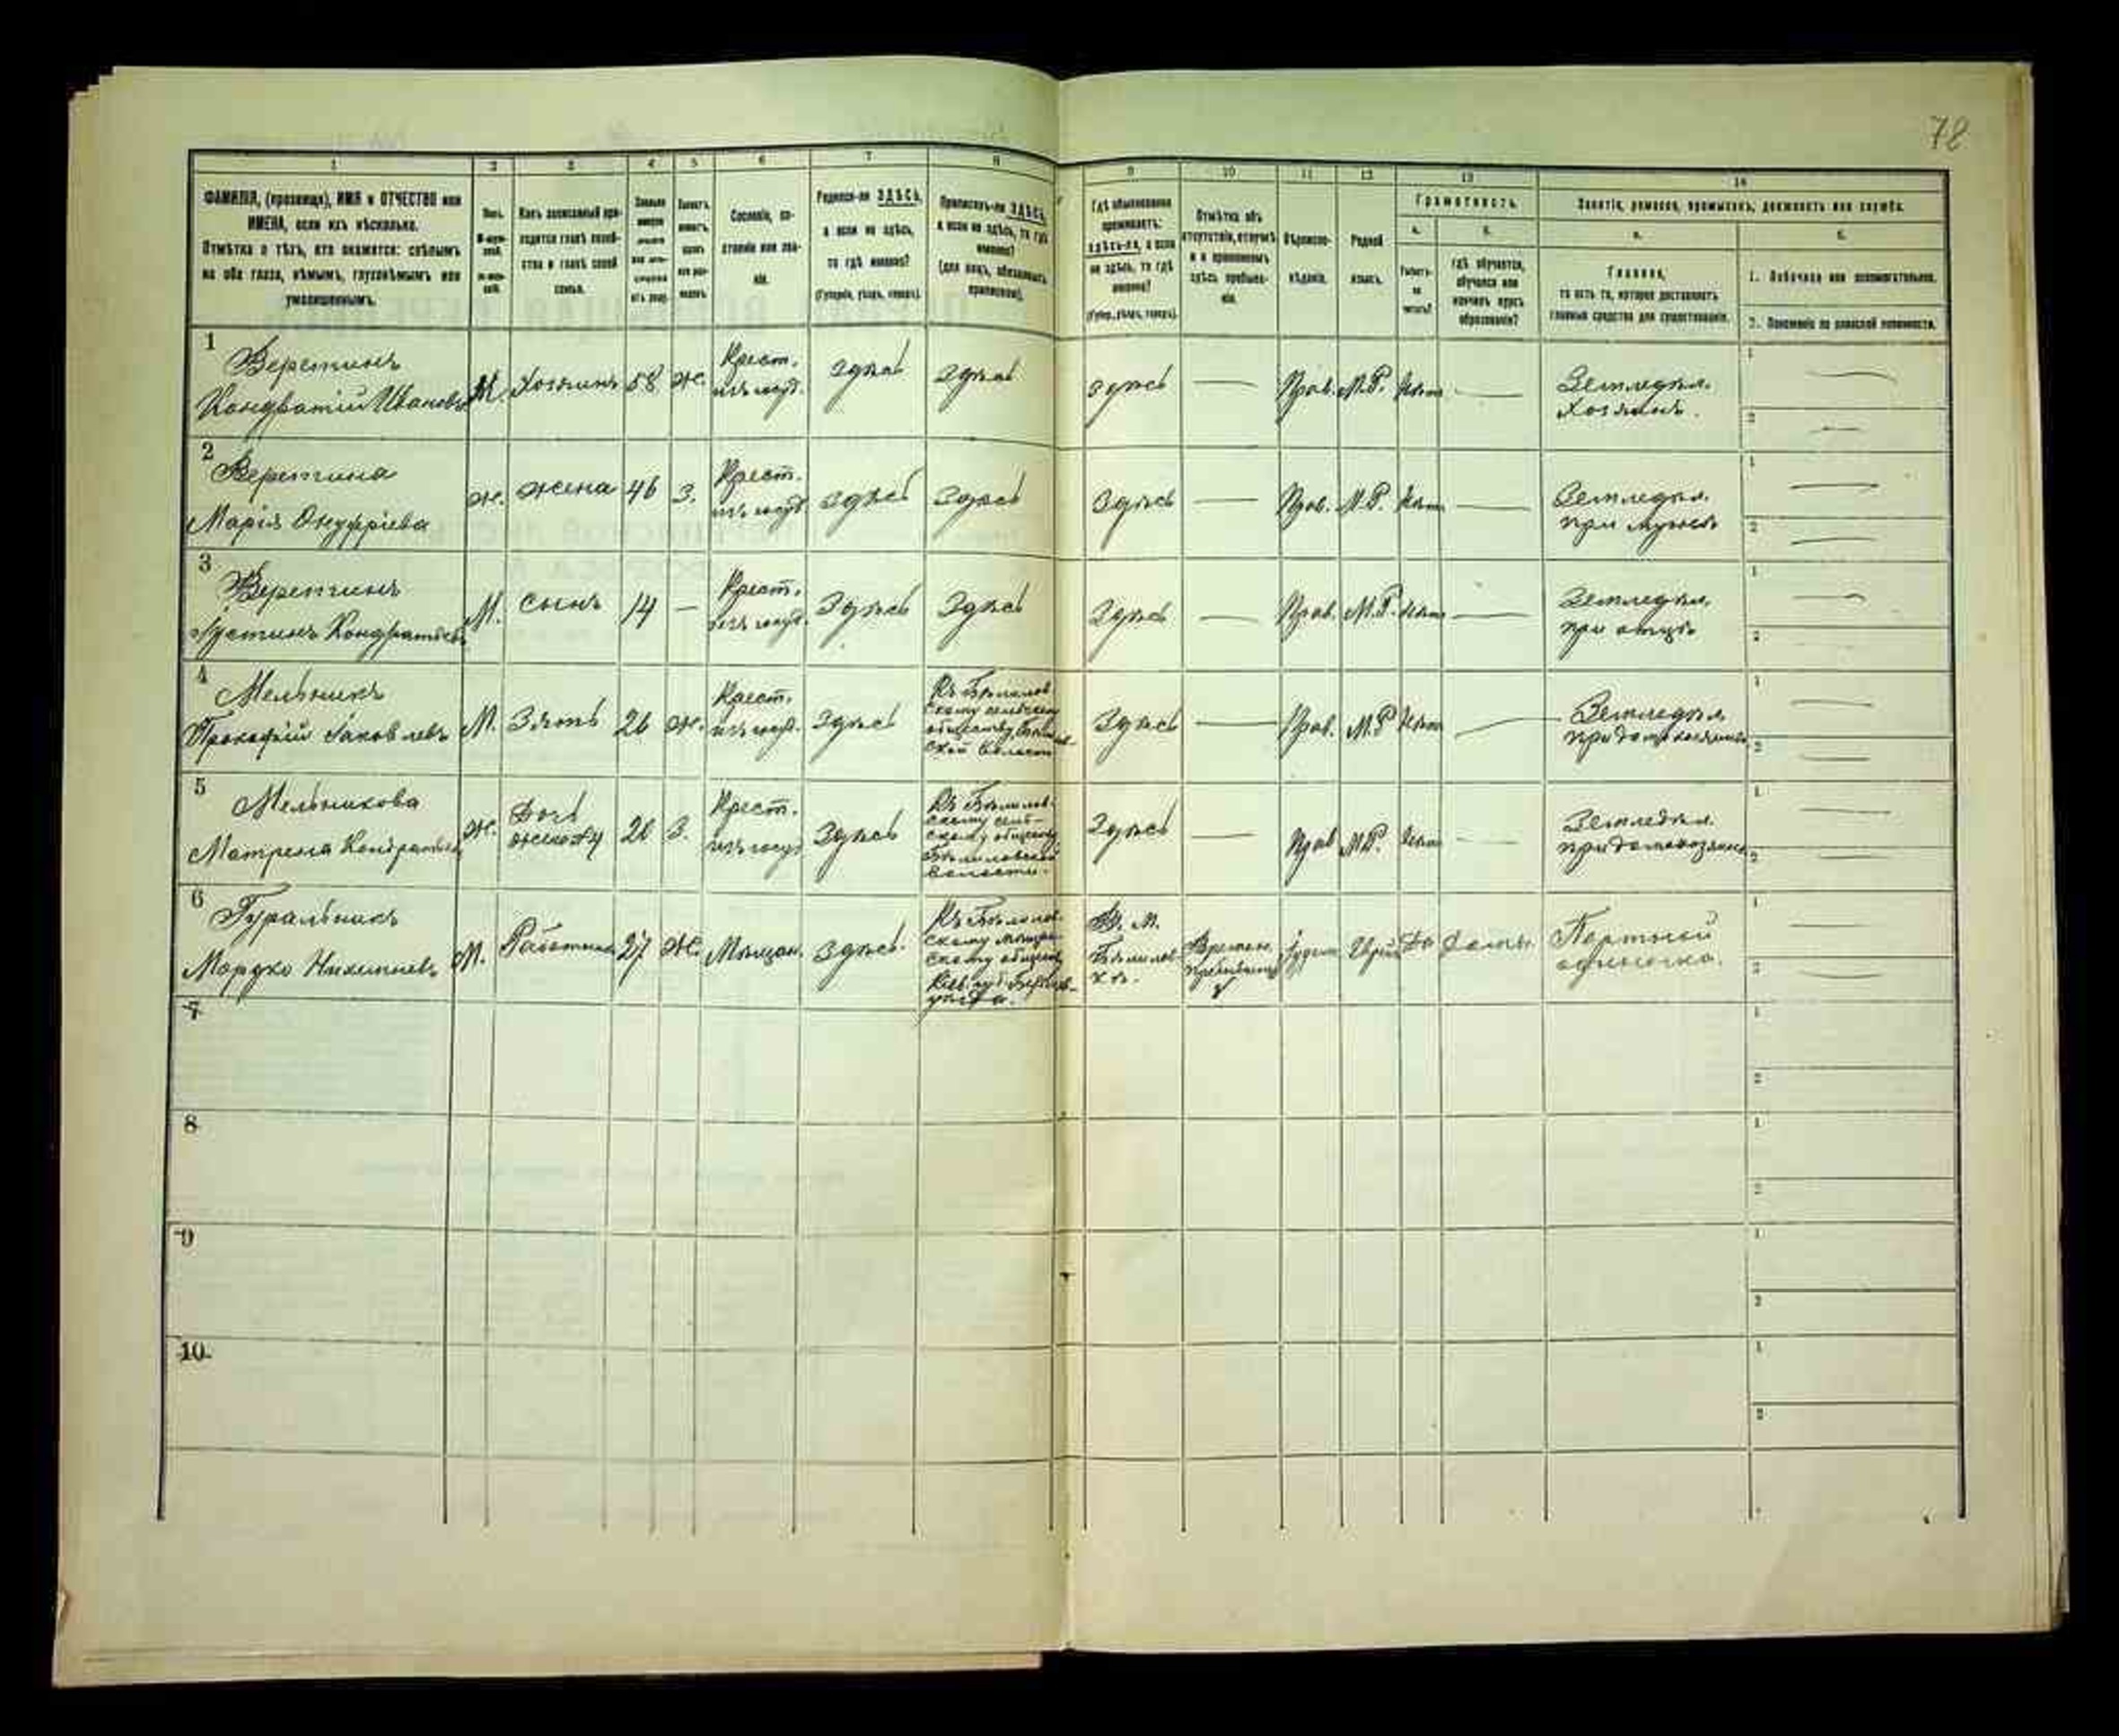 78
1 2 3 4 5 6 7 8 9 10 11 12 13 14
ФАМИЛІЯ, (прозвище), ИМЯ и ОТЧЕСТВО или
ИМЕНА, если ихъ нѣсколько.
Отмѣтка о тѣхъ, кто окажется: слѣпымъ
на оба глаза, нѣмымъ, глухонѣмымъ или
умалишеннымъ.
Полъ.
Какъ записанный при-
ходится главѣ хозяй-
ства и главѣ своей
семьи.
Сословіе, со-
стояніе или зва-
ніе.
Родился-ли ЗДѢСЬ,
а если не здѣсь,
то гдѣ именно?
(Губернія, уѣздъ, городъ).
Приписанъ-ли ЗДѢСЬ,
а если не здѣсь, то гдѣ
именно?
(для лицъ, обязанныхъ
припискою).
Гдѣ обыкновенно
проживаетъ:
здѣсь-ли, а если
не здѣсь, то гдѣ
именно?
(Губер., уѣздъ, городъ).
Отмѣтка объ
отсутствіи, отлучкѣ
и о временномъ
здѣсь пребыва-
ніи.
Вѣроиспо-
вѣданіе.
Родной
языкъ.
Грамотность.
а. б.
Умѣетъ-
ли
читать?
гдѣ обучается,
обучался или
кончилъ курсъ
образованія?
Занятіе, ремесло, промыселъ, должность или служба.
а. б.
Главное,
то есть то, которое доставляетъ
главныя средства для существованія.
1. Побочное или вспомогательное.
2. Положеніе по воинской повинности.
1
Веретинъ
Кондратій Ивановъ
М. Хозяинъ 58 Ж.
Крест.
изъ госуд.
Здѣсь Здѣсь Здѣсь — Прав. М.Р. Нѣт —
Земледѣл.
Хозяинъ.
2
Веретина
Марія Онуфріева
Ж. Жена 46 З.
Крест.
изъ госуд.
Здѣсь Здѣсь Здѣсь — Прав. М.Р. Нѣт —
Земледѣл.
при мужѣ
3
Веретинъ
Іустинъ Кондратьевъ
М. Сынъ 14 —
Крест.
изъ госуд.
Здѣсь Здѣсь Здѣсь — Прав. М.Р. Нѣт —
Земледѣл.
при отцѣ
4
Мельникъ
Прокофій Яковлевъ
М. Зять 26 Ж.
Крест.
изъ госуд.
Здѣсь
Къ Бѣлилов
скому сельском
обществу
ской волости
Здѣсь — Прав. М.Р Нѣт —
Земледѣл.
при домохозяинѣ
5
Мельникова
Матрена Кондратьев
Ж.
Дочь
жена №4
20 З.
Крест.
изъ госуд
Здѣсь
Къ Бѣлилов-
скому сель-
скому обществу
Бѣлиловской
волости.
Здѣсь — Прав М.Р. Нѣт —
Земледѣл.
при домохозяинѣ
6
Гуральникъ
Мордко
М. Работник 27 Ж. Мѣщан. Здѣсь.
Къ Бѣлилов-
скому мѣщан
скому обществ
Кіев. губ. Бердичев-
уѣзда.
В. М.
Бѣлилов-
кѣ.
Времен.
пребывает
Іудей Еврей Да Дома.
Портной
одиночка.
7
8
9
10